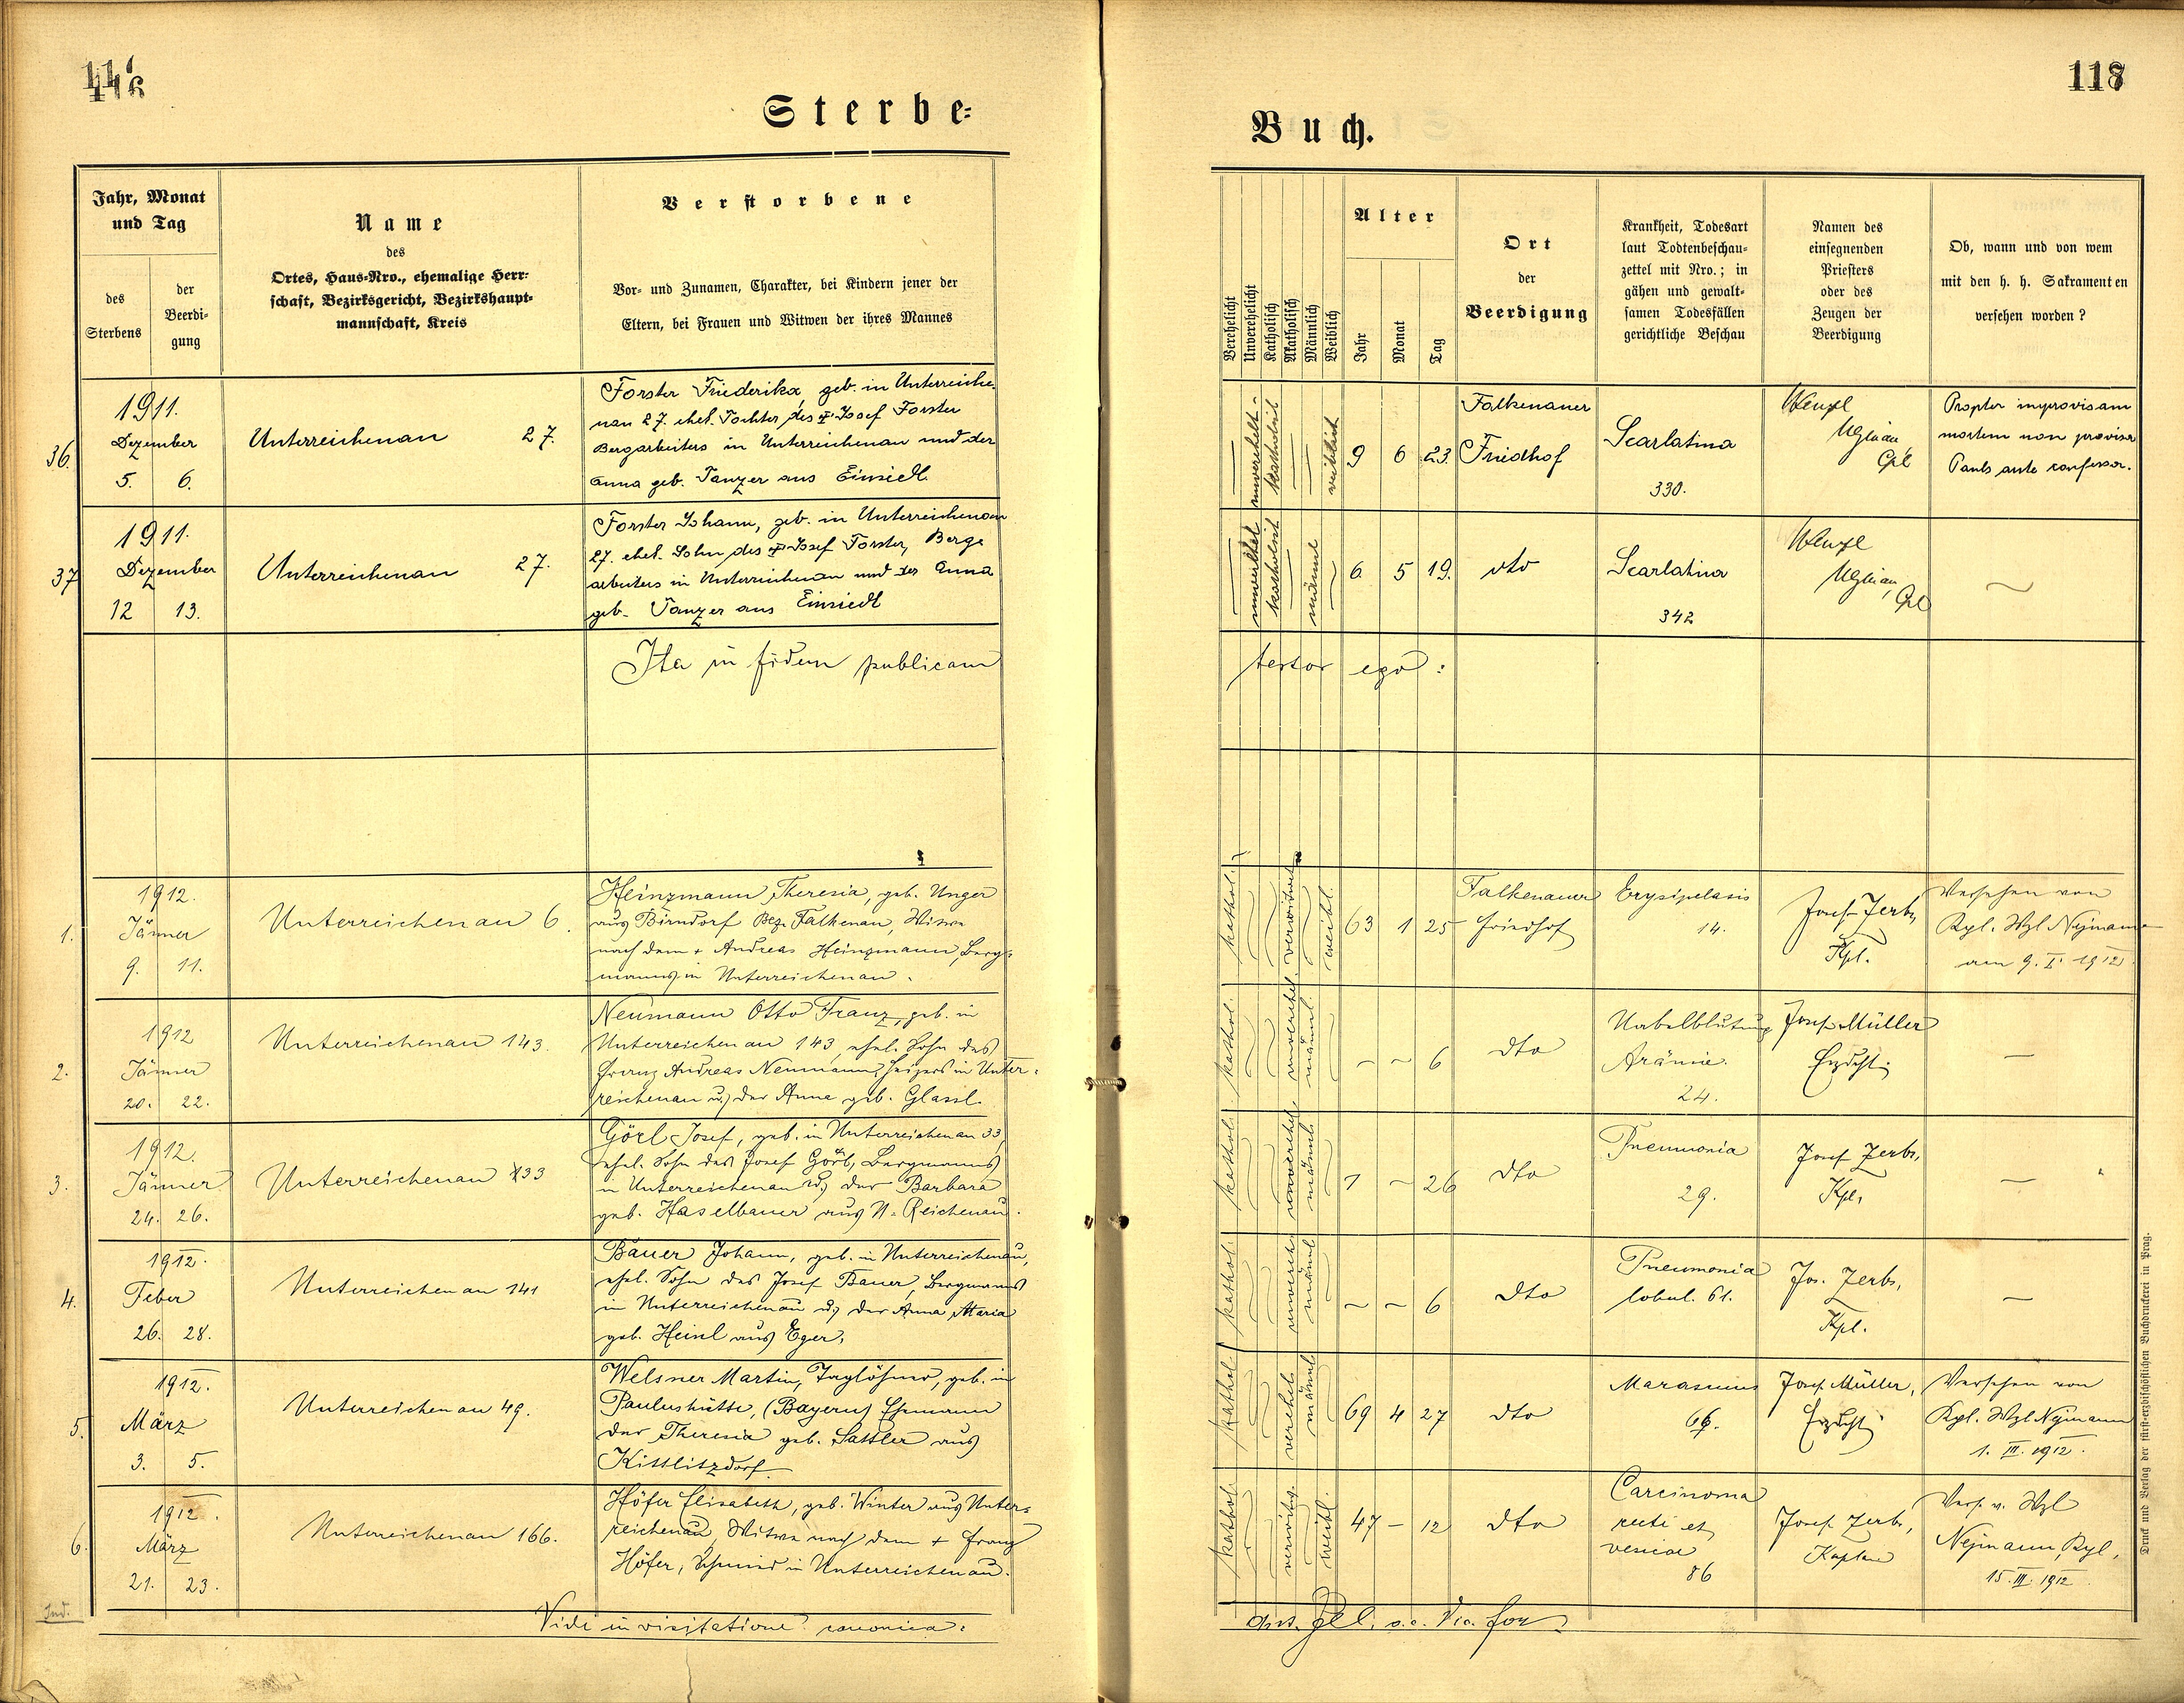 116
Sterbe=
Jahr, Monat
und Tag
des
Sterbens
der
Beerdi=
gung
Name
des
Ortes, Haus=Nro., ehemalige Herr=
schaft, Bezirksgericht, Bezirkshaupt=
mannschaft, Kreis
Verstorbene
Vor= und Zunamen, Charakter, bei Kindern jener der
Eltern, bei Frauen und Witwen der ihres Mannes
36.
1911.
Dezember
5. 6.
Unterreichenau 27.
Forster Friederika, geb. in Unterreiche-
nau 27. ehel. Tochter des Josef Forster
Bergarbeiters in Unterreichenau und der
Anna geb. Tanzer aus Einsiedl.
37
1911.
Dezember
12 13.
Unterreichenau 27.
Forster Johann, geb. in Unterreichenau
27. ehel. Sohn des Josef Forster, Berg=
arbeiters in Unterreichenau und der Anna
geb. Tanzer aus Einsiedl
Ita in fidem publicam
1.
1912.
Jänner
9. 11.
Unterreichenau 6.
Heinzmann Theresia, geb. Unger
aus Birndorf Bez. Falkenau, Witwe
nach dem + Andreas Heinzmann, Berg=
manns in Unterreichenau.
2.
1912
Jänner
20. 22.
Unterreichenau 143.
Neumann Otto Franz, geb. in
Unterreichenau 143, ehel. Sohn des
Franz Andreas Neumann, Heizers in Unter=
reichenau u. der Anna geb. Glassl.
3.
1912.
Jänner
24. 26.
Unterreichenau 133
Görl Josef, geb. in Unterreichenau 33,
ehel. Sohn des Josef Görl, Bergmanns
in Unterreichenau u. der Barbara
geb. Haselbauer aus U. Reichenau.
4.
1912.
Feber
26. 28.
Unterreichenau 141
Bauer Johann, geb. in Unterreichenau,
ehel. Sohn des Josef Bauer, Bergmanns
in Unterreichenau u. der Anna Maria
geb. Heinl aus Eger.
5.
1912.
März
3. 5.
Unterreichenau 49.
Welsner Martin, Taglöhner, geb. in
Paulushütte, (Bayern) Ehemann
der Theresia geb. Sattler aus
Kittlitzdorf.
6.
1912.
März
21. 23.
Unterreichenau 166.
Höfer Elisabeth, geb. Winter aus Unter=
reichenau, Witwe nach dem + Franz
Höfer, Schmied in Unterreichenau.
Ind.
Vidi in visitatione canonica:
118
Buch.
Verehelicht
Unverehelicht
Katholisch
Akatholisch
Männlich
Weiblich
Alter
Jahr
Monat
Tag
Ort
der
Beerdigung
Krankheit, Todesart
laut Todtenbeschau=
zettel mit Nro.; in
gähen und gewalt=
samen Todesfällen
gerichtliche Beschau
Namen des
einsegnenden
Priesters
oder des
Zeugen der
Beerdigung
Ob, wann und von wem
mit den h. h. Sakramenten
versehen worden?
katholisch
weiblich
9 6 23.
Falkenauer
Friedhof
Scarlatina
330.
Wenzl
Cpl
Propter improvisam
mortem non provisa
Paulo ante confessa.
katholisch
männl
6 5 19.
dto
Scarlatina
342
Wenzl
Cpl
testor ego:
kathol.
verwitwet
weibl.
63 1 25
Falkenauer
Friedhof
Erysipelasis
14.
Josef Zerbs,
Kpl.
Versehen von
Kpl. Wzl Nejmann
am 9. I. 1912.
kathol.
unverehel.
männl.
- - 6
dto
Nabelblutung
Anämie.
24.
Josef Müller
Erzdcht.
—
kathol.
unverehel.
männl.
1 - 26
dto
Pneumonia
29.
Josef Zerbs,
Kpl.
—
kathol.
unverehel.
männl
- - 6
dto
Pneumonia
lobul. 61.
Jos. Zerbs,
Kpl.
—
kathol.
verehel.
männl.
69 4 27
dto
Marasmus
66.
Josef Müller,
Erzdcht.
Versehen von
Kpl. Wzl Nejmann
1. III. 1912.
kathol.
verwitw.
weibl.
47 - 12
dto
Carcinoma
recti et
vesicae
86
Josef Zerbs,
Kaplan
Vers. v. Wzl
Nejmann, Kpl.
15. III. 1912
Vic. for.
Druck und Verlag der fürst=erzbischöflichen Buchdruckerei in Prag.